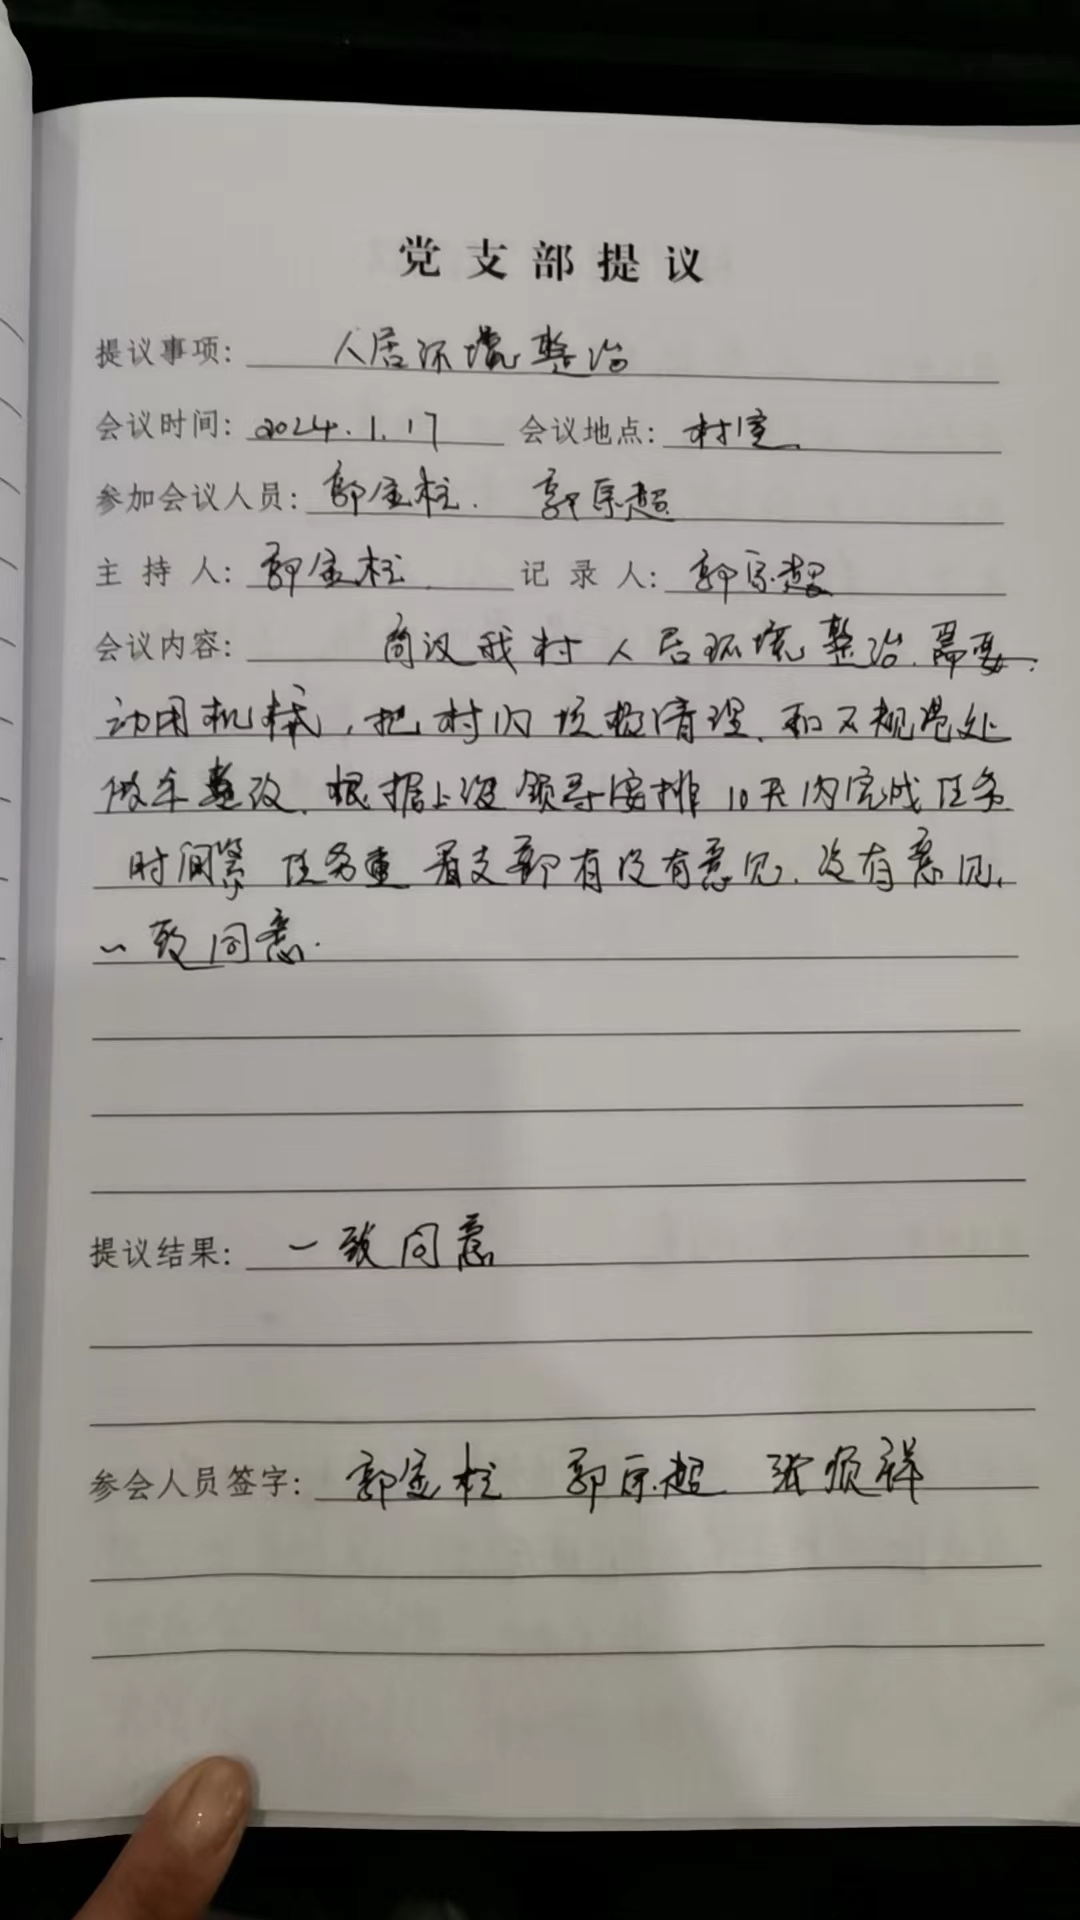 党支部提议
提议事项: 人居环境整治
会议时间: 2024.1.17 会议地点: 村室
参加会议人员: 郭金柱. 郭原超
主持人: 郭金柱. 记录人: 郭原超
会议内容: 商议我村人居环境整治.需要
动用机械,把村内垃圾清理.和不规范处
做车整改.根据上级领导安排10天内完成任务
时间紧 任务重 看支部有没有意见.没有意见,
一致同意.
提议结果: 一致同意
参会人员签字: 郭金柱 郭原超 张须祥